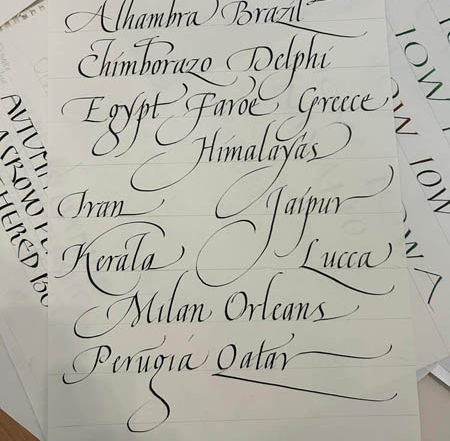 Alhambra Brazil
Chimborazo Delphi
Egypt Faroe Greece
Himalayas
Iran Jaipur
Kerala Lucca
Milan Orleans
Perugia Qatar
AUTUMN
IOW
IOW
IOW
IOWA